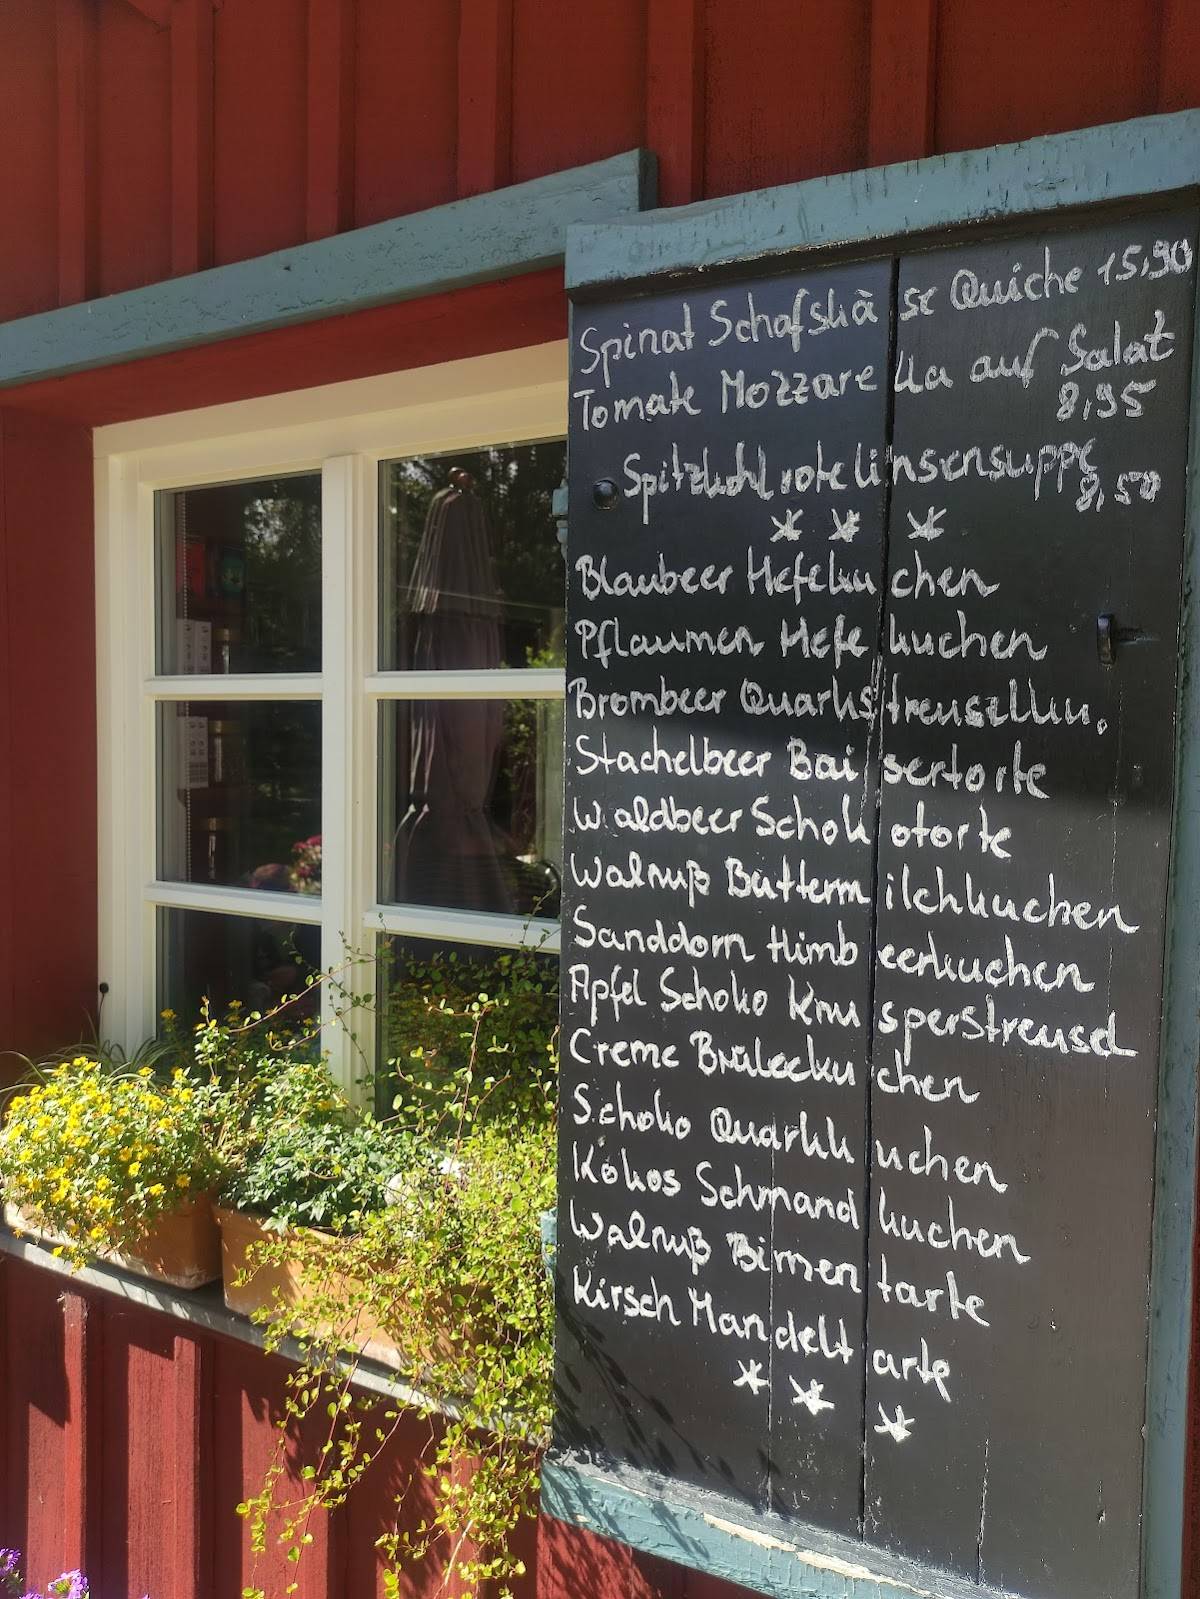 Spinat Schafskäse Quiche 15,90
Tomate Mozzarella auf Salat
8,95
Spitzkohl rote linsensuppe
8,50
* * *
Blaubeer Hefekuchen
Pflaumen Hefekuchen
Brombeer Quarkstreuselku.
Stachelbeer Baisertorte
Waldbeer Schokotorte
Walnuß Buttermilchkuchen
Sanddorn Himbeerkuchen
Apfel Schoko Knusperstreusel
Creme Brûleekuchen
Schoko Quarkkuchen
Kokos Schmandkuchen
Walnuß Birnentarte
Kirsch Mandeltarte
* * *